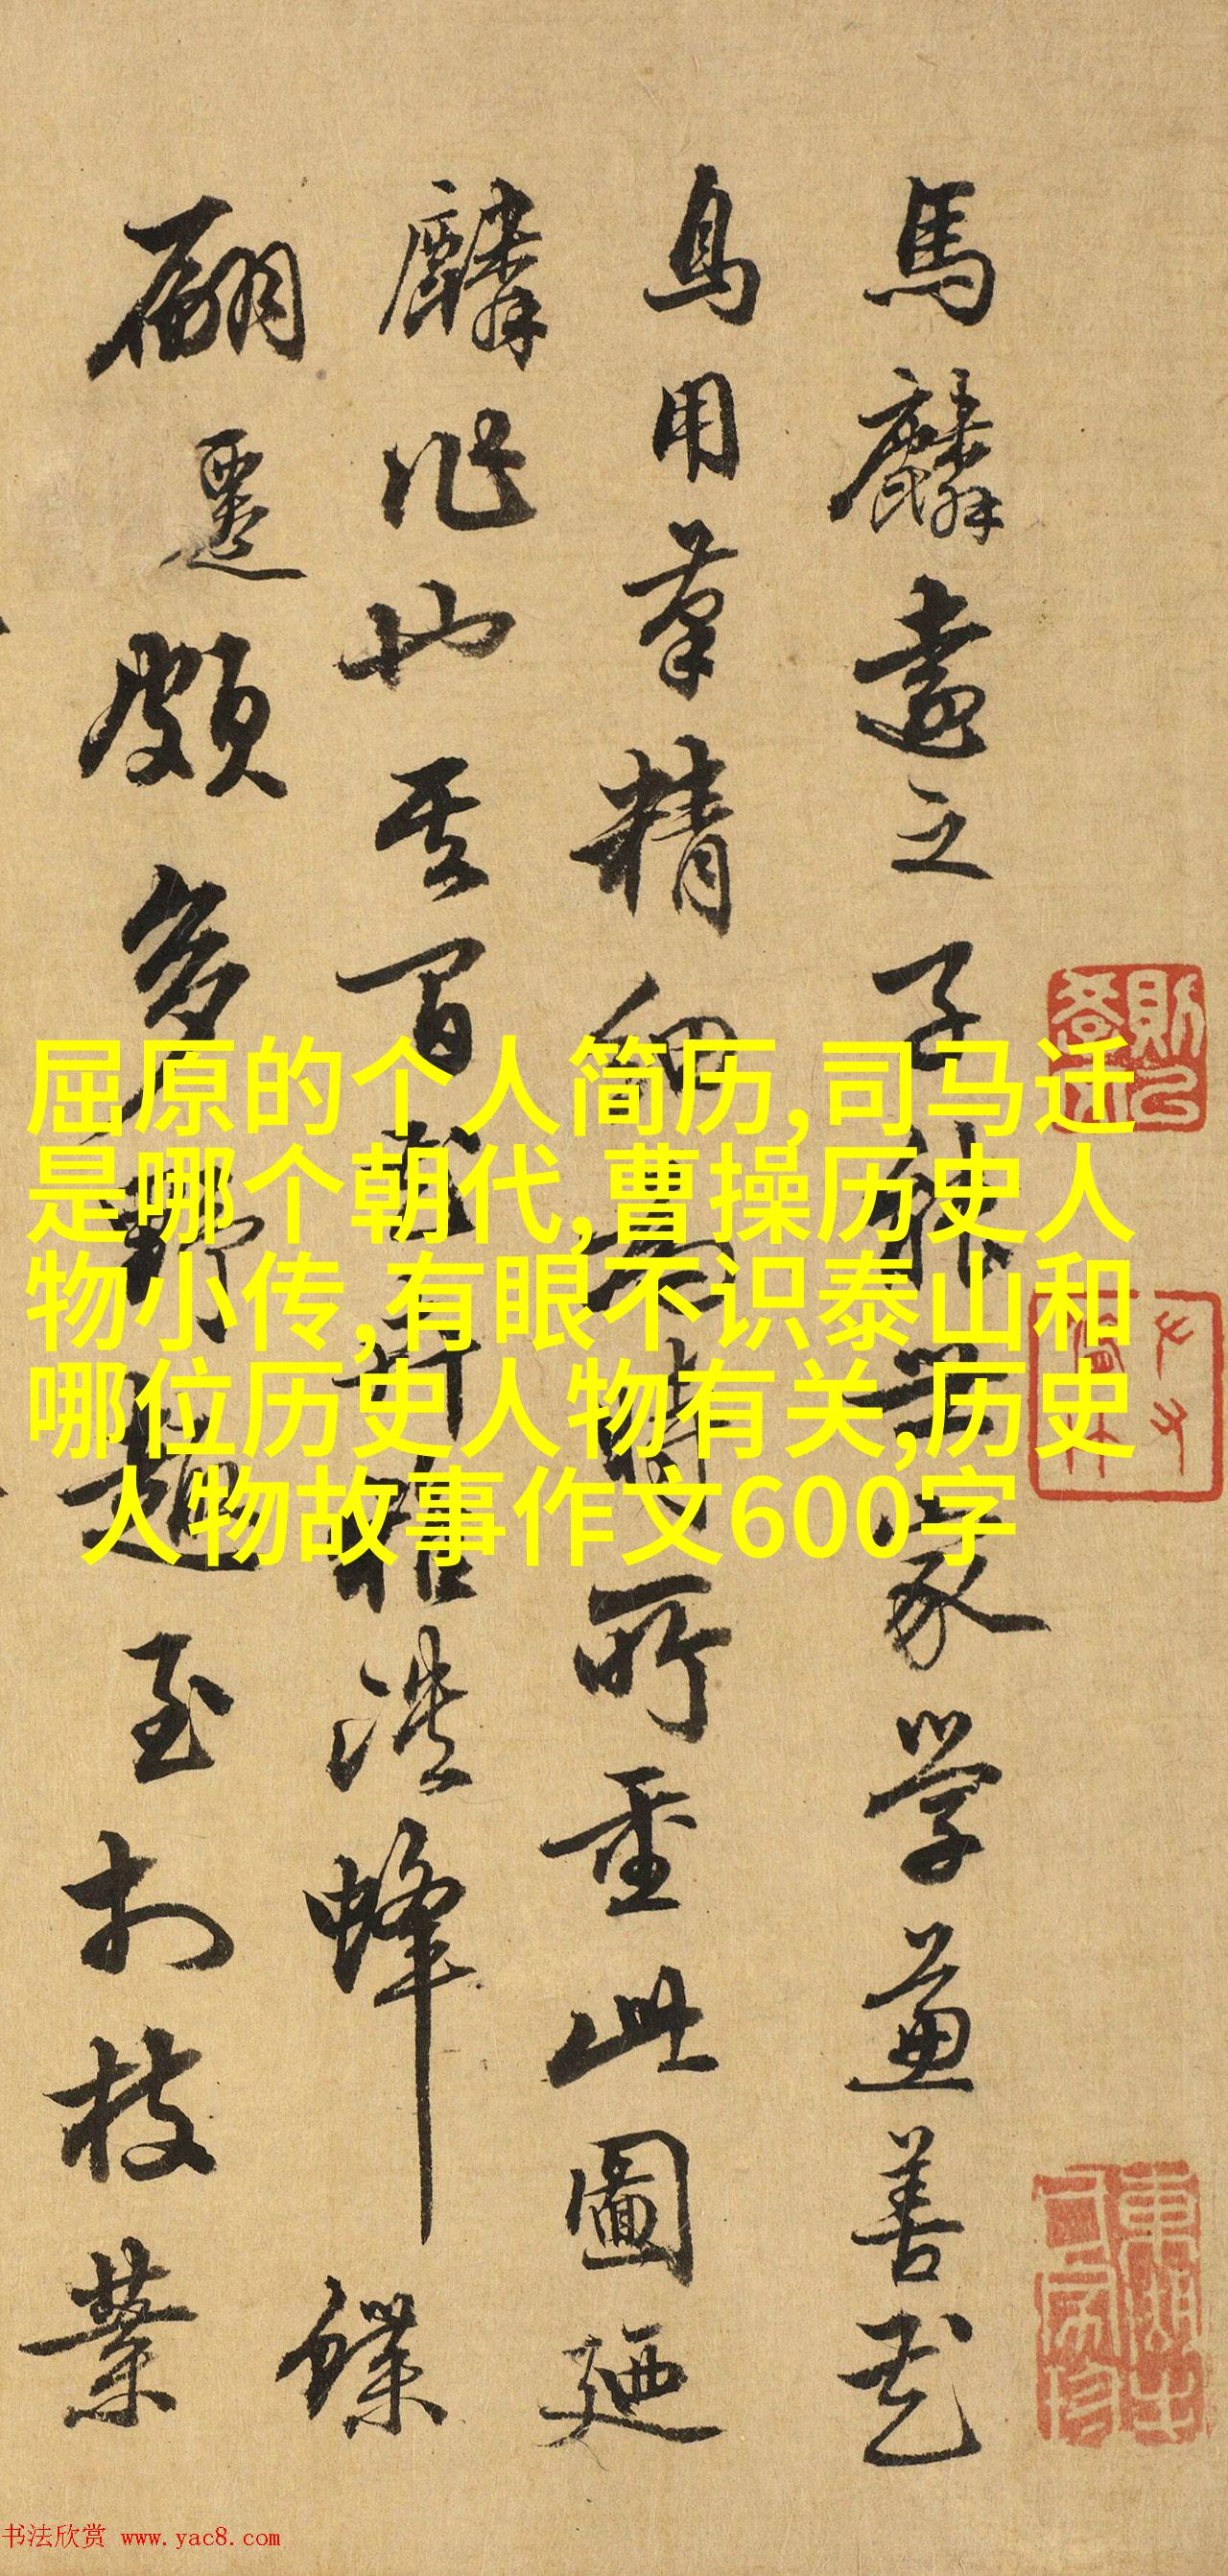 馬麟遠之子能世家學兼善花
鳥用筆精細為時所重此圖廼
麟作也其間蜂蝶
翩躚頗多野趣至於枝葉
屈原的个人简历,司马迁
是哪个朝代,曹操历史人
物小传,有眼不识泰山和
哪位历史人物有关,历史
人物故事作文600字
书法欣赏 www.yac8.com